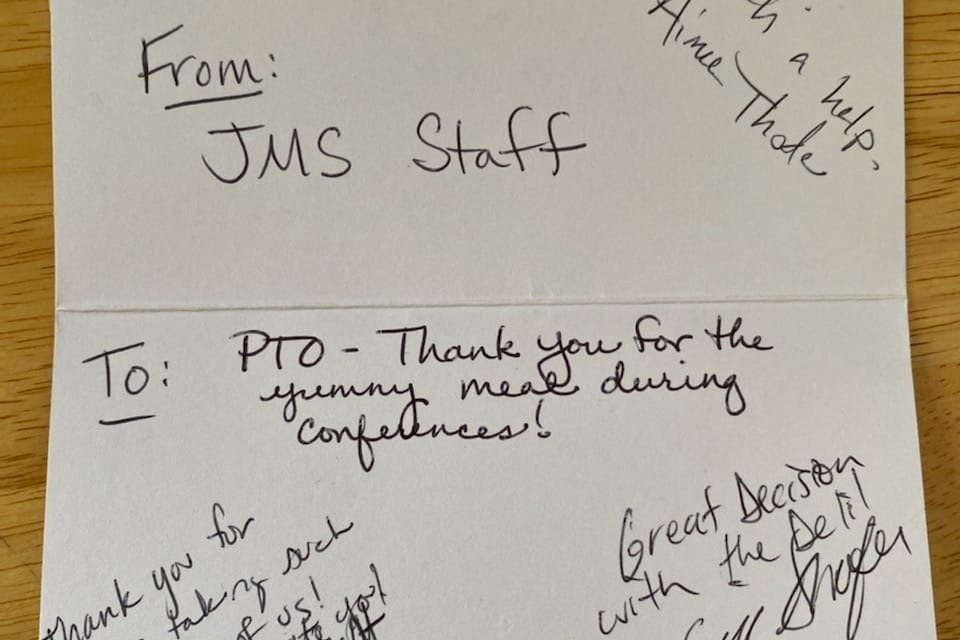 a help.
Aimee Thode
From:
JMS Staff
To: PTO - Thank you for the
yummy meal during
conferences!
Thank you for
taking such
of us!
you!
Great Decision
with the Deli!